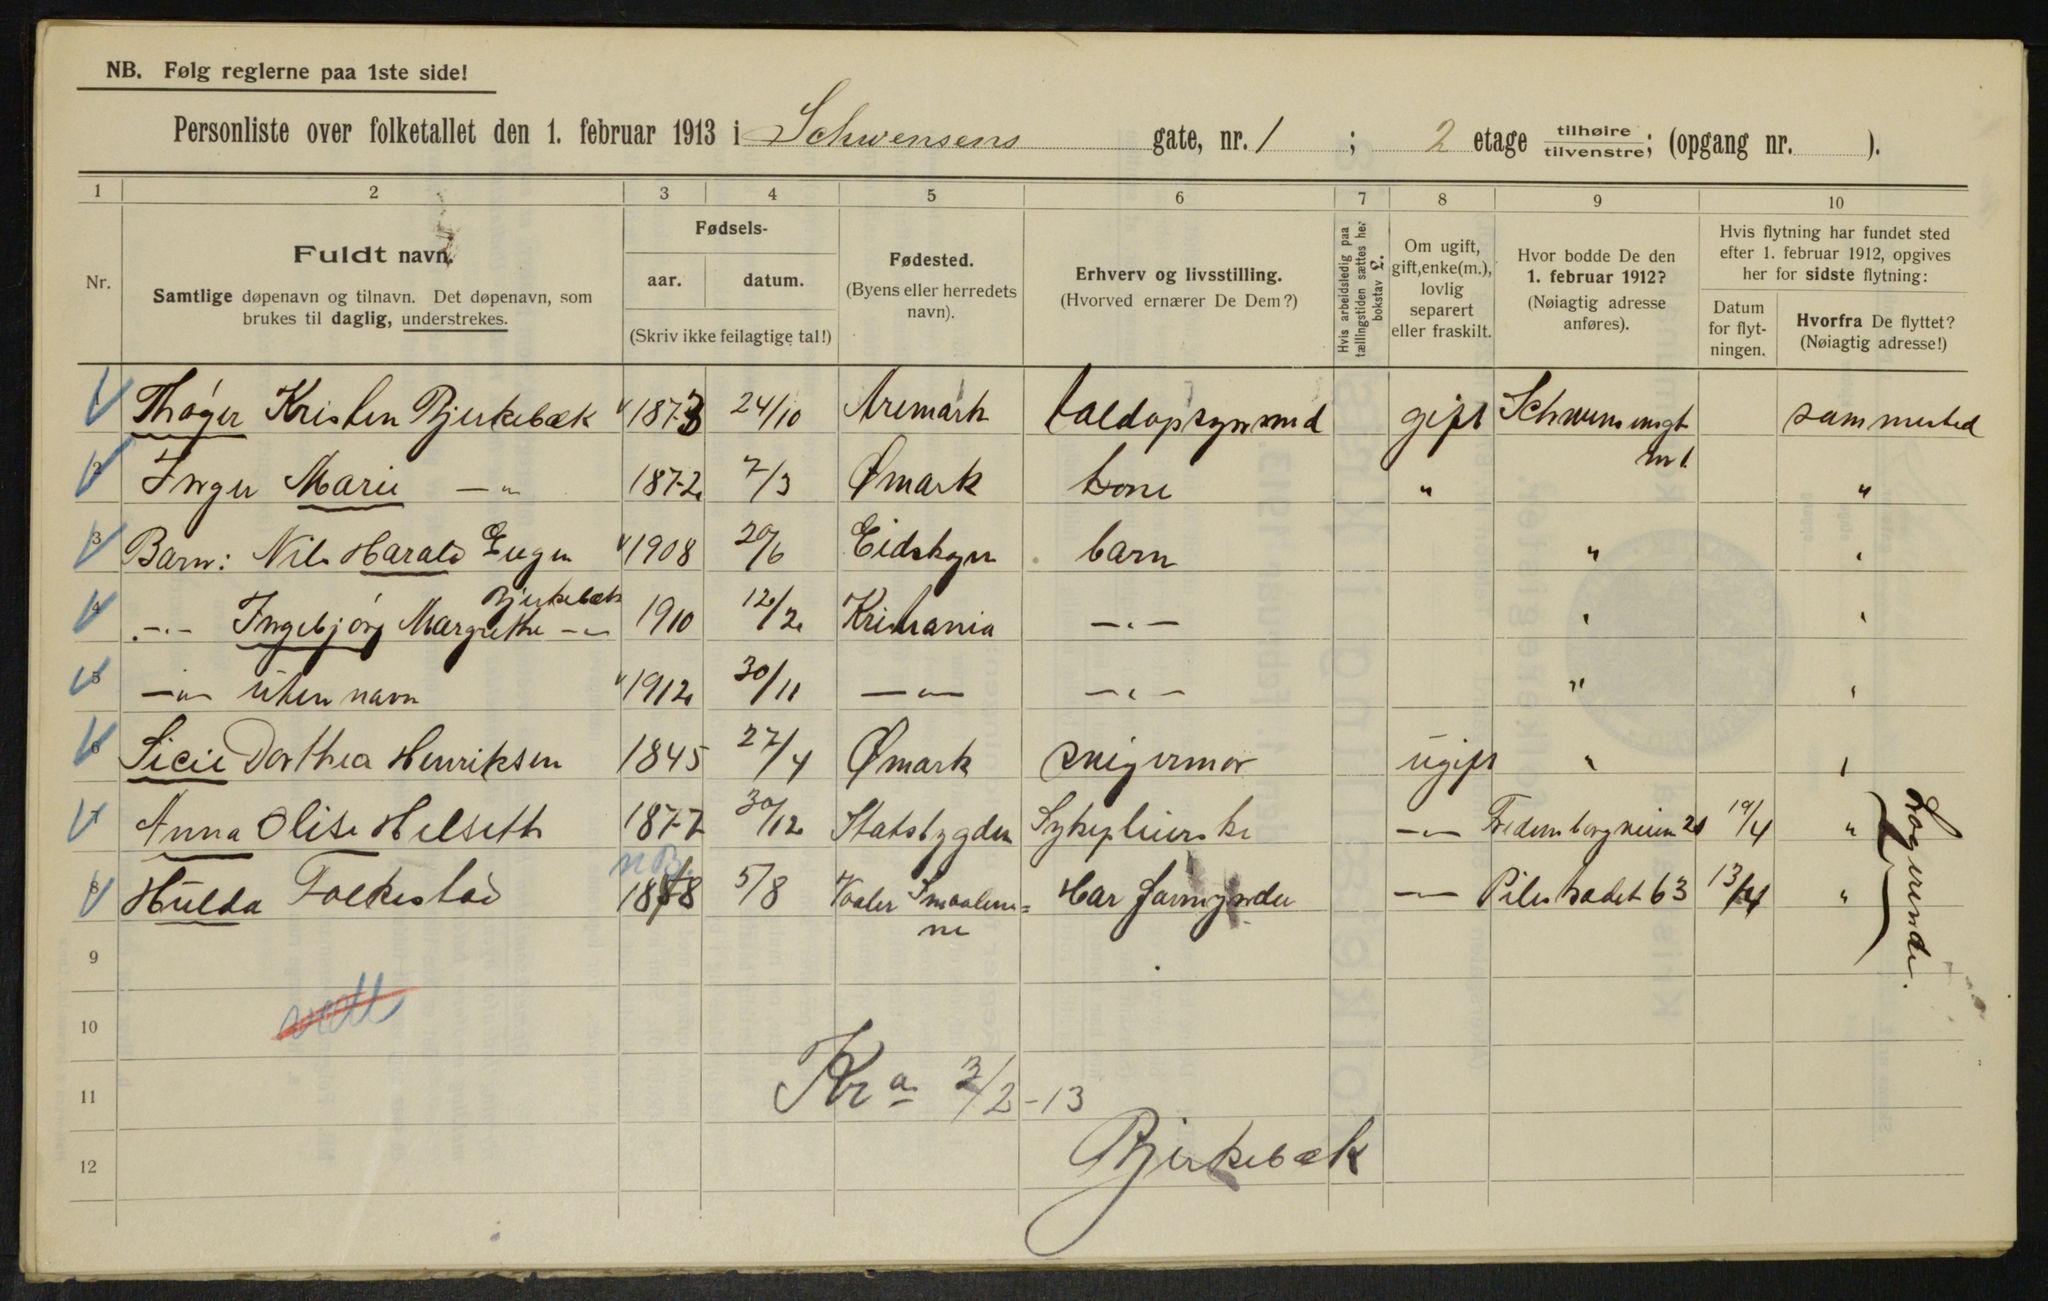 NB. Følg reglerne paa 1ste side!
Personliste over folketallet den 1. februar 1913 i Schwensens gate, nr. 1 ; 2 etage tilhøire tilvenstre; (opgang nr. ).
1 2 3 4 5 6 7 8 9 10
Nr.
Fuldt navn.
Samtlige døpenavn og tilnavn. Det døpenavn, som
brukes til daglig, understrekes.
Fødsels-
aar. datum.
(Skriv ikke feilagtige tal!)
Fødested.
(Byens eller herredets
navn).
Erhverv og livsstilling.
(Hvorved ernærer De Dem?)
Hvis arbeidsledig paa
tællingstiden sættes he.
bokstav L.
Om ugift,
gift,enke(m.),
lovlig
separert
eller fraskilt.
Hvor bodde De den
1. februar 1912?
(Nøiagtig adresse
anføres).
Hvis flytning har fundet sted
efter 1. februar 1912, opgives
her for sidste flytning:
Datum
for flyt-
ningen.
Hvorfra De flyttet?
(Nøiagtig adresse!)
1 Thøger Kristen Bjerkebæk 1873 24/10 Aremark toldopsynsmd gift Schwensensgt sammested
nr 1
2 Inger Marie —"— 1872 7/3 Ømark kone " "
3 Barn: Nils Harald Eugen 1908 20/6 Eidskogen barn " "
Bjerkebæk
4 —"— Ingebjørg Margrethe —"— 1910 12/2 Kristiania —"— " "
5 —"— uten navn 1912 30/11 —"— —"— " "
6 Dorthea Henriksen 1845 27/4 Ømark svigermor ugift " "
7 Anna Olise Helseth 1877 30/12 Stadsbygden Sykepleierske —"— Fredensborgveien 19/4 "
NB.
8 Hulda Folkestad 1888 5/8 Vaaler Smaalene= Har formynder —"— Pilestradet 63 13/4 "
ne
Logerende.
9
10
11
12
Kra 3/2-13
Bjerkebæk